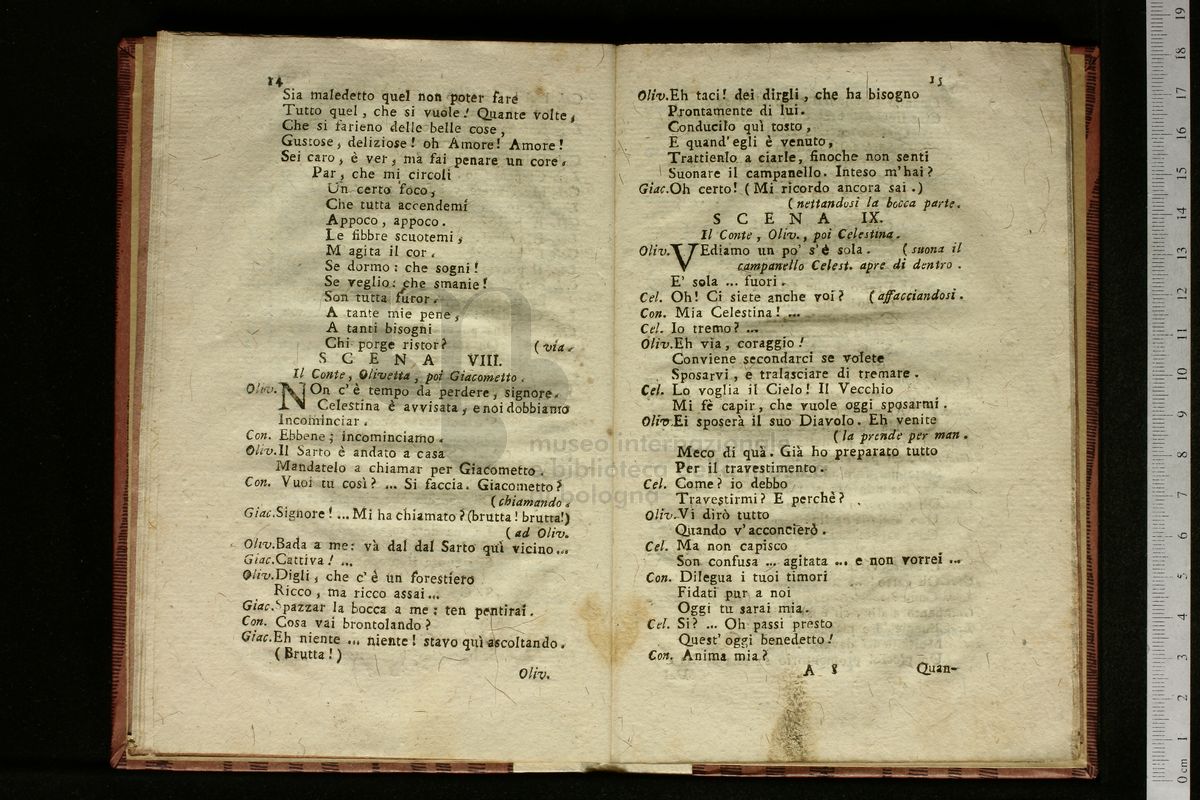 14
Sia maledetto quel non poter fare
Tutto quel, che si vuole! Quante volte,
Che si farieno delle belle cose,
Gustose, deliziose! oh Amore! Amore!
Sei caro, è ver, ma fai penare un core.
Par, che mi circoli
Un certo foco,
Che tutta accendemi
Appoco, appoco.
Le fibbre scuotemi,
M agita il cor.
Se dormo: che sogni!
Se veglio: che smanie!
Son tutta furor.
A tante mie pene,
A tanti bisogni
Chi porge ristor? (via.
SCENA VIII.
Il Conte, Olivetta, poi Giacometto.
Oliv. NOn c'è tempo da perdere, signore.
Celestina è avvisata, e noi dobbiamo
Incominciar.
Con. Ebbene; incominciamo.
Oliv. Il Sarto è andato a casa
Mandatelo a chiamar per Giacometto.
Con. Vuoi tu così? ... Si faccia. Giacometto?
(chiamando.
Giac. Signore! ... Mi ha chiamato? (brutta! brutta!)
(ad Oliv.
Oliv. Bada a me: và dal dal Sarto quì vicino...
Giac. Cattiva! ...
Oliv. Digli, che c'è un forestiero
Ricco, ma ricco assai...
Giac. Spazzar la bocca a me: ten pentirai.
Con. Cosa vai brontolando?
Giac. Eh niente ... niente! stavo quì ascoltando.
(Brutta!)
Oliv.
15
Oliv. Eh taci! dei dirgli, che ha bisogno
Prontamente di lui.
Conducilo quì tosto,
E quand'egli è venuto,
Trattienlo a ciarle, finoche non senti
Suonare il campanello. Inteso m'hai?
Giac. Oh certo! (Mi ricordo ancora sai.)
(nettandosi la bocca parte.
SCENA IX.
Il Conte, Oliv., poi Celestina.
Oliv. VEdiamo un po' s'è sola. (suona il
campanello Celest. apre di dentro.
E' sola ... fuori.
Cel. Oh! Ci siete anche voi? (affacciandosi.
Con. Mia Celestina! ...
Cel. Io tremo? ...
Oliv. Eh via, coraggio!
Conviene secondarci se volete
Sposarvi, e tralasciare di tremare.
Cel. Lo voglia il Cielo! Il Vecchio
Mi fè capir, che vuole oggi sposarmi.
Oliv. Ei sposerà il suo Diavolo. Eh venite
(la prende per man.
Meco di quà. Già ho preparato tutto
Per il travestimento.
Cel. Come? io debbo
Travestirmi? E perchè?
Oliv. Vi dirò tutto
Quando v'acconcierò.
Cel. Ma non capisco
Son confusa ... agitata ... e non vorrei ...
Con. Dilegua i tuoi timori
Fidati pur a noi
Oggi tu sarai mia.
Cel. Si? ... Oh passi presto
Quest'oggi benedetto!
Con. Anima mia?
A 8 Quan-
museo internazionale
e biblioteca della musica
bologna
0 cm 1 2 3 4 5 6 7 8 9 10 11 12 13 14 15 16 17 18 19